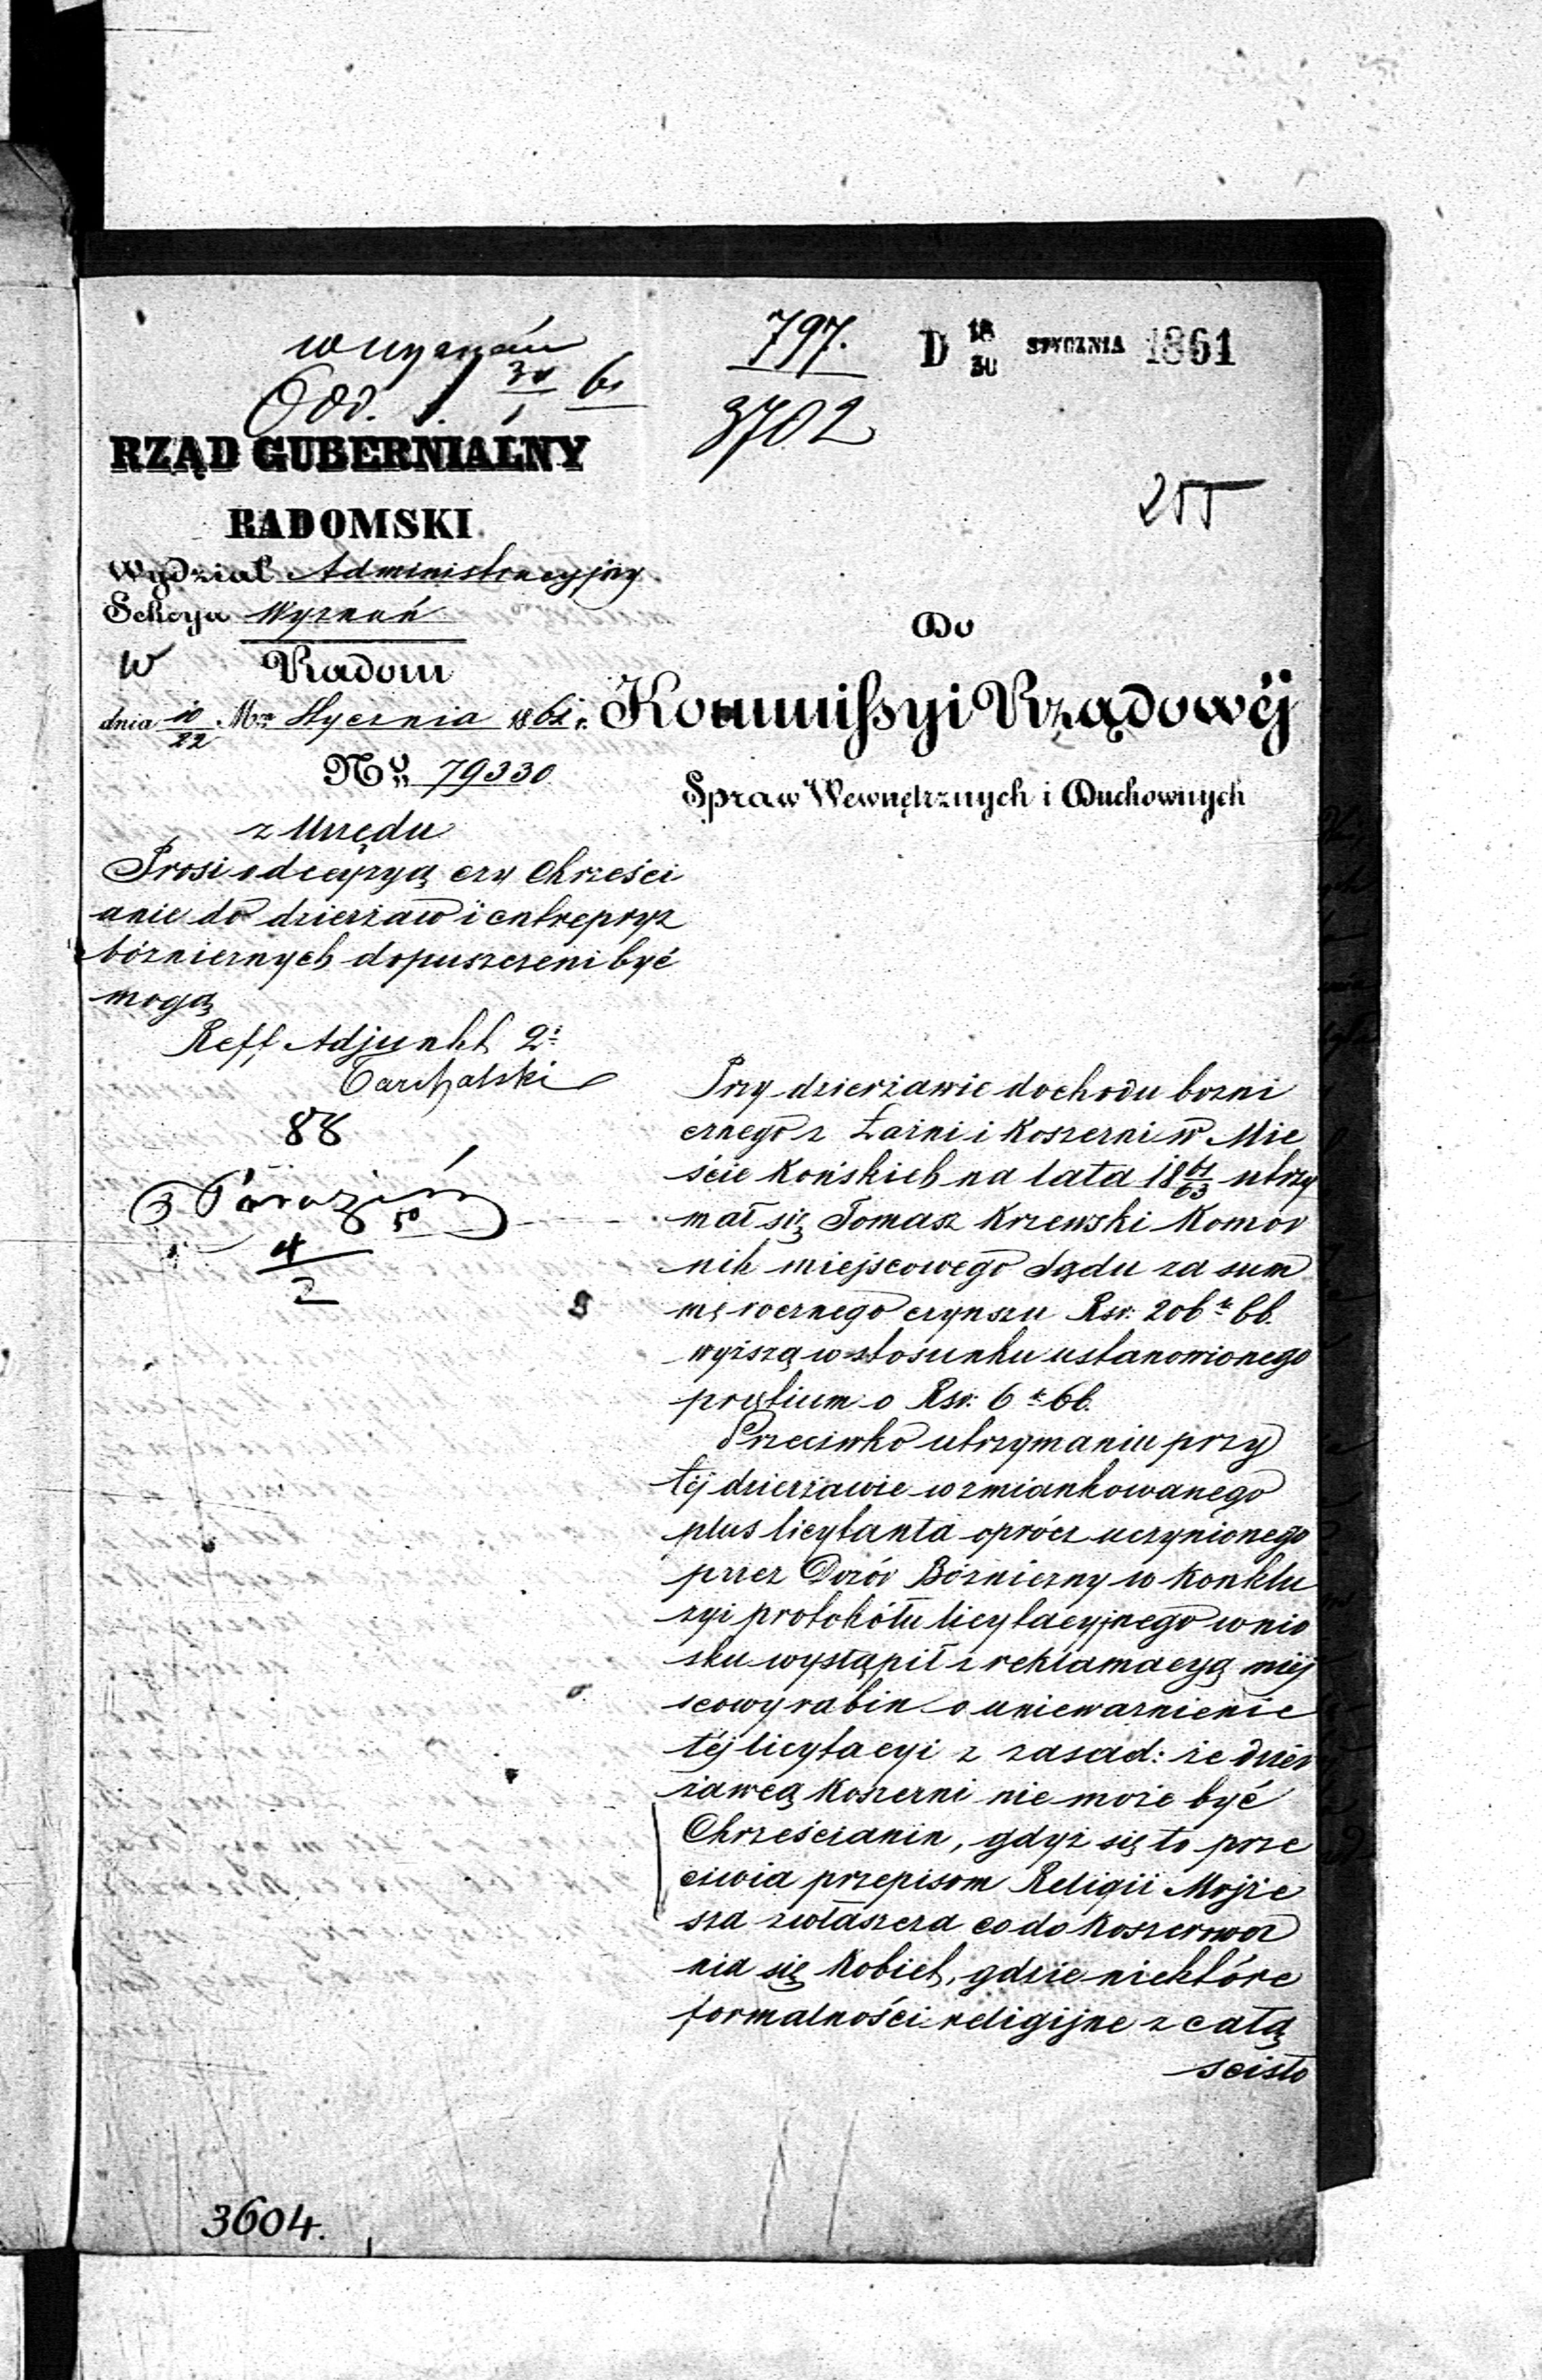 wyznań
Odd. 1. 30/1 61
797.
3702
D 18/30 STYCZNIA 1861
255
RZĄD GUBERNIALNY
RADOMSKI
Wydział Administracyjny
Sekcya Wyznań
w Radom
dnia 10/22 Mca Stycznia 1861 r.
No 79330
z Urzędu
Prosi o decyzyą czy Chrześci
anie do dzierżaw i entrepryz
bóznicznych dopuszczeni być
mogą
Reff Adjunkt 2i
Tarchalski
88
4/2
Do
Kommissyi Rządowéj
Spraw Wewnętrznych i Duchownych
Przy dzierżawie dochodu bozni
cznego z Łaźni i Koszerni w Mie
ście Końskich na lata 18 61/63 utrzy
mał się Tomasz Krzewski Komor
nik miejscowego Sądu za sum
mę rocznego czynszu Rsr: 206 k 66.
wyższą w stosunku ustanowionego
prętium o Rsr: 6 k 66.
Przeciwko utrzymaniu przy
téj dzierżawie wzmiankowanego
plus licytanta oprócz uczynionego
przez Dozór Bózniczny w Konklu
zyi protokółu licytacyjnego wnio
sku wystąpił z reklamacyą miej
scowy rabin o unieważnienie
téj licytacyi z zasad: że dzier
żawcą Koszerni nie może być
Chrześcianin, gdyż się to prze
ciwia przepisom Religii Mojże
sza zwłaszcza co do Koszerowa
nia się Kobiet, gdzie niektóre
formalności religijne z całą
scisło
3604.